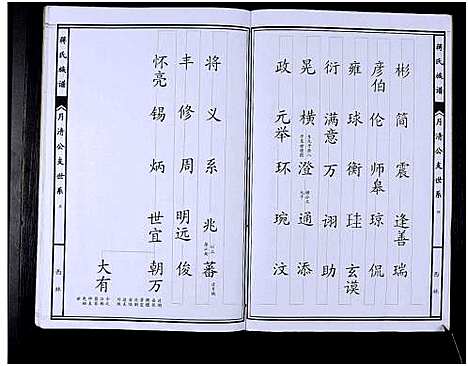 蒋氏族谱
月清公支世系
西林
彬 简 震 逢善 瑞
彦伯 伦 师皋 琼 侃
雍 球 衡 珪 玄谟
衍 满意 万 诩 助
晃 横 澄 通 添
政 元举 环 琬 汶
将 义 系 兆 蕃
丰 修 周 明远 俊
怀亮 锡 炳 世宜 朝万
大有
蒋氏族谱
月清公支世系
西林